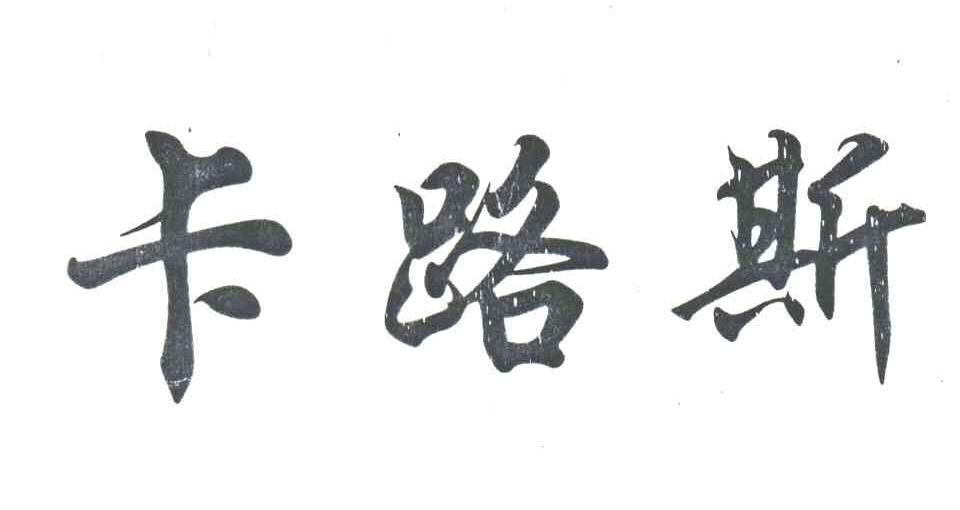 卡路斯